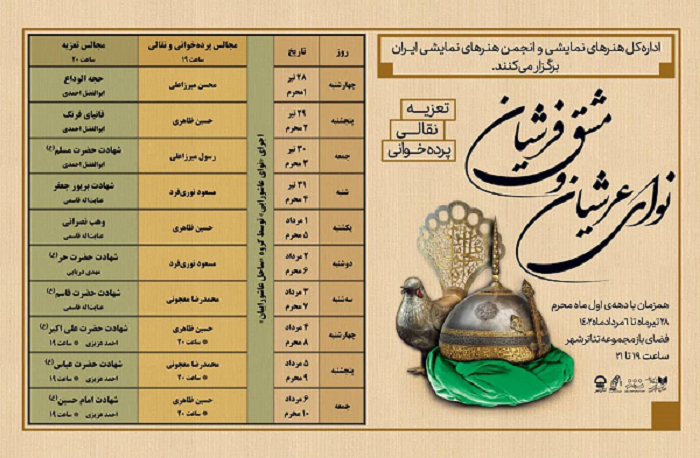 اداره‌کل هنرهای نمایشی و انجمن هنرهای نمایشی ایران
برگزار می‌کنند.
تعزیه
نقالی
پرده‌خوانی
مشق فرشیان
و
نوای عرشیان
همزمان با دهه‌ی اول ماه محرم
۲۸ تیرماه تا ۶ مرداد ماه ۱۴۰۲
فضای باز مجموعه تئاتر شهر
ساعت ۱۹ تا ۲۱
روز تاریخ مجالس پرده‌خوانی و نقالی مجالس تعزیه
ساعت ۱۹ ساعت ۲۰
چهارشنبه ۲۸ تیر محسن میرزاعلی حجه الوداع
۱ محرم ابوالفضل احمدی
پنجشنبه ۲۹ تیر حسین طاهری قانیای فرنگ
۲ محرم ابوالفضل احمدی
جمعه ۳۰ تیر رسول میرزاعلی شهادت حضرت مسلم(ع)
۳ محرم ابوالفضل احمدی
شنبه ۳۱ تیر مسعود نوری‌فرد شهادت بریور جعفر
۴ محرم عنایت‌اله قاسمی
یکشنبه ۱ مرداد حسین طاهری وهب نصرانی
۵ محرم عنایت‌اله قاسمی
دوشنبه ۲ مرداد مسعود نوری‌فرد شهادت حضرت حر(ع)
۶ محرم مهدی دریایی
سه‌شنبه ۳ مرداد محمدرضا معجونی شهادت حضرت قاسم(ع)
۷ محرم عنایت‌اله قاسمی
چهارشنبه ۴ مرداد حسین طاهری شهادت حضرت علی اکبر(ع)
۸ محرم * ساعت ۲۰ احمد عزیزی * ساعت ۱۹
پنجشنبه ۵ مرداد محمدرضا معجونی شهادت حضرت عباس(ع)
۹ محرم * ساعت ۲۰ احمد عزیزی * ساعت ۱۹
جمعه ۶ مرداد حسین طاهری شهادت امام حسین(ع)
۱۰ محرم * ساعت ۲۰ احمد عزیزی * ساعت ۱۹
اجرای «نوای عاشورایی» توسط گروه «ساحل عاشوراییان»